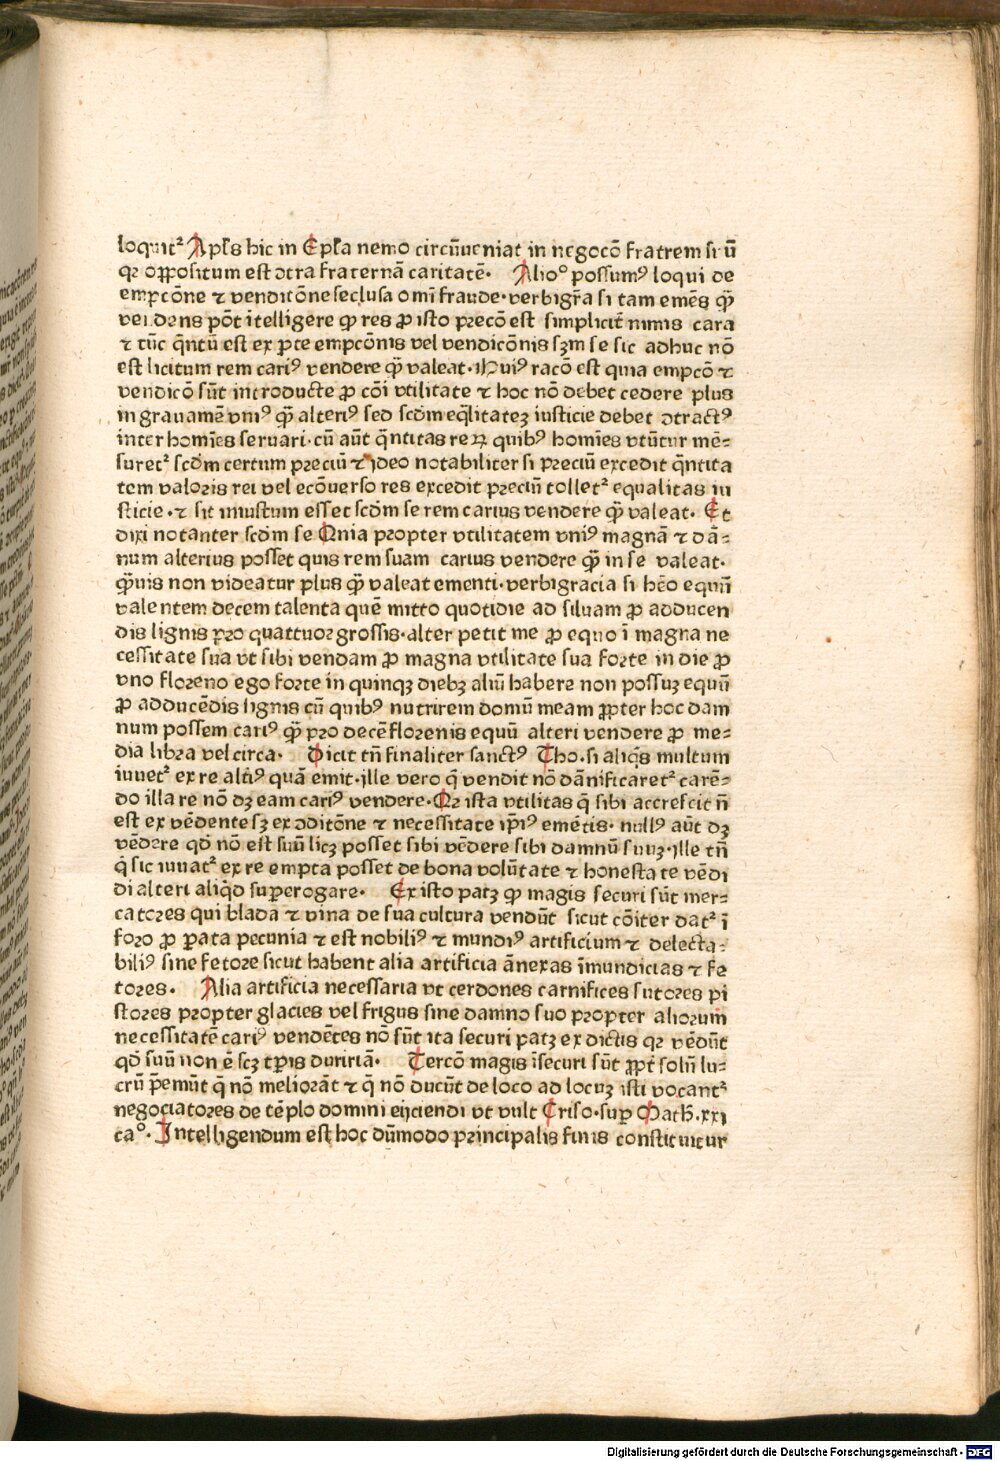 loquit² Apl̃s hic in Epl̃a nemo circũueniat in negocõ fratrem suũ
qꝛ oꝓpositum est ↄtra fraternã caritatẽ. Alio° possumꝰ loqui de
empcõne ⁊ venditõne seclusa omĩ fraude·verbigr̃a si tam emẽs qꝫ̃
vendens põt ĩtelligere ꝙ res ꝓ isto precõ est simplicit̃ nimis cara
⁊ tũc q̃ntũ est ex ꝑte empcõnis vel vendicõnis ẜm se sic adhuc nõ
est licitum rem cariꝰ vendere q̃ꝫ valeat·Huiꝰ racõ est quia empcõ ⁊
vendicõ sũt introducte ꝓ cõi vtilitate ⁊ hoc nõ debet cedere plus
in grauamẽ vniꝰ q̃ꝫ alteriꝰ sed scd̃m eq̃litatez iusticie debet ↄtractꝰ
inter homĩes seruari·cũ aũt q̃ntitas reꝝ quibꝰ homĩes vtũtur mẽ⸗
suret² scd̃m certum preciũ ⁊ ideo notabiliter si preciũ excedit q̃ntita
tem valoris rei vel ecõuerso res excedit preciũ tollet² equalitas iu
sticie·⁊ sic iniustum esset scd̃m se rem carius vendere q̃ꝫ valeat. Et
dixi notanter scd̃m se Quia propter vtilitatem vniꝰ magnã ⁊ dã⸗
num alterius posset quis rem suam carius vendere q̃ꝫ in se valeat.
q̃ꝫuis non videatur plus q̃ꝫ valeat ementi·verbigracia si hẽo equũ
valentem decem talenta quẽ mitto quotidie ad siluam ꝓ adducen
dis lignis pro quattuor grossis·alter petit me ꝓ equo ĩ magna ne
cessitate sua vt sibi vendam ꝓ magna vtilitate sua forte in die ꝓ
vno floreno ego forte in quinqꝫ diebꝫ aliũ habere non possuꝫ equũ
ꝓ adducẽdis lignis cũ quibꝰ nutrirem domũ meam ꝓpter hoc dam
num possem cariꝰ q̃ꝫ pro decẽ florenis equũ alteri vendere ꝓ me⸗
dia libra vel circa. Dicit tñ finaliter sanctꝰ Tho·si aliq̃s multum
iuuet² ex re alt̃iꝰ quã emit·ille vero q̃ vendit nõ dãnificaret² carẽ⸗
do illa re nõ dꝫ eam cariꝰ vendere·Qꝛ ista vtilitas q̃ sibi accrescit ñ
est ex vẽdente sꝫ ex ↄditõne ⁊ necessitate ip̃iꝰ emẽtis· nullꝰ aũt dꝫ
vẽdere qd̃ nõ est suũ licꝫ posset sibi vẽdere sibi damnũ suuꝫ·ille tñ
q̃ sic iuuat² ex re empta posset de bona volũtate ⁊ honestate vẽdi
di alteri aliq̃d suꝑerogare. Ex isto patꝫ ꝙ magis securi sũt mer⸗
catores qui blada ⁊ vina de sua cultura vendũt sicut cõiter dat² ĩ
foro ꝓ ꝑata pecunia ⁊ est nobiliꝰ ⁊ mundiꝰ artificium ⁊ delecta⸗
biliꝰ sine fetore sicut habent alia artificia ãnexas ĩmundicias ⁊ fe
tores. Alia artificia necessaria vt cerdones carnifices sutores pi
stores propter glacies vel frigus sine damno suo propter aliorum
necessitatẽ cariꝰ vendẽtes nõ sũt ita securi patꝫ ex dictis qꝛ vẽdũt
qd̃ suũ non ẽ scꝫ tꝑis duriciã. Tercõ magis ĩsecuri sũt ꝓpt̃ solũ lu⸗
crũ p̃emũt q̃ nõ meliorãt ⁊ q̃ nõ ducũt de loco ad locuꝫ isti vocant²
negociatores de tẽplo domini eijciendi vt vult Criso·suꝑ Math̃.xxi
ca°. Intelligendum est hoc dũmodo principalis finis constituitur
Digitalisierung gefördert durch die Deutsche Forschungsgemeinschaft - DFG